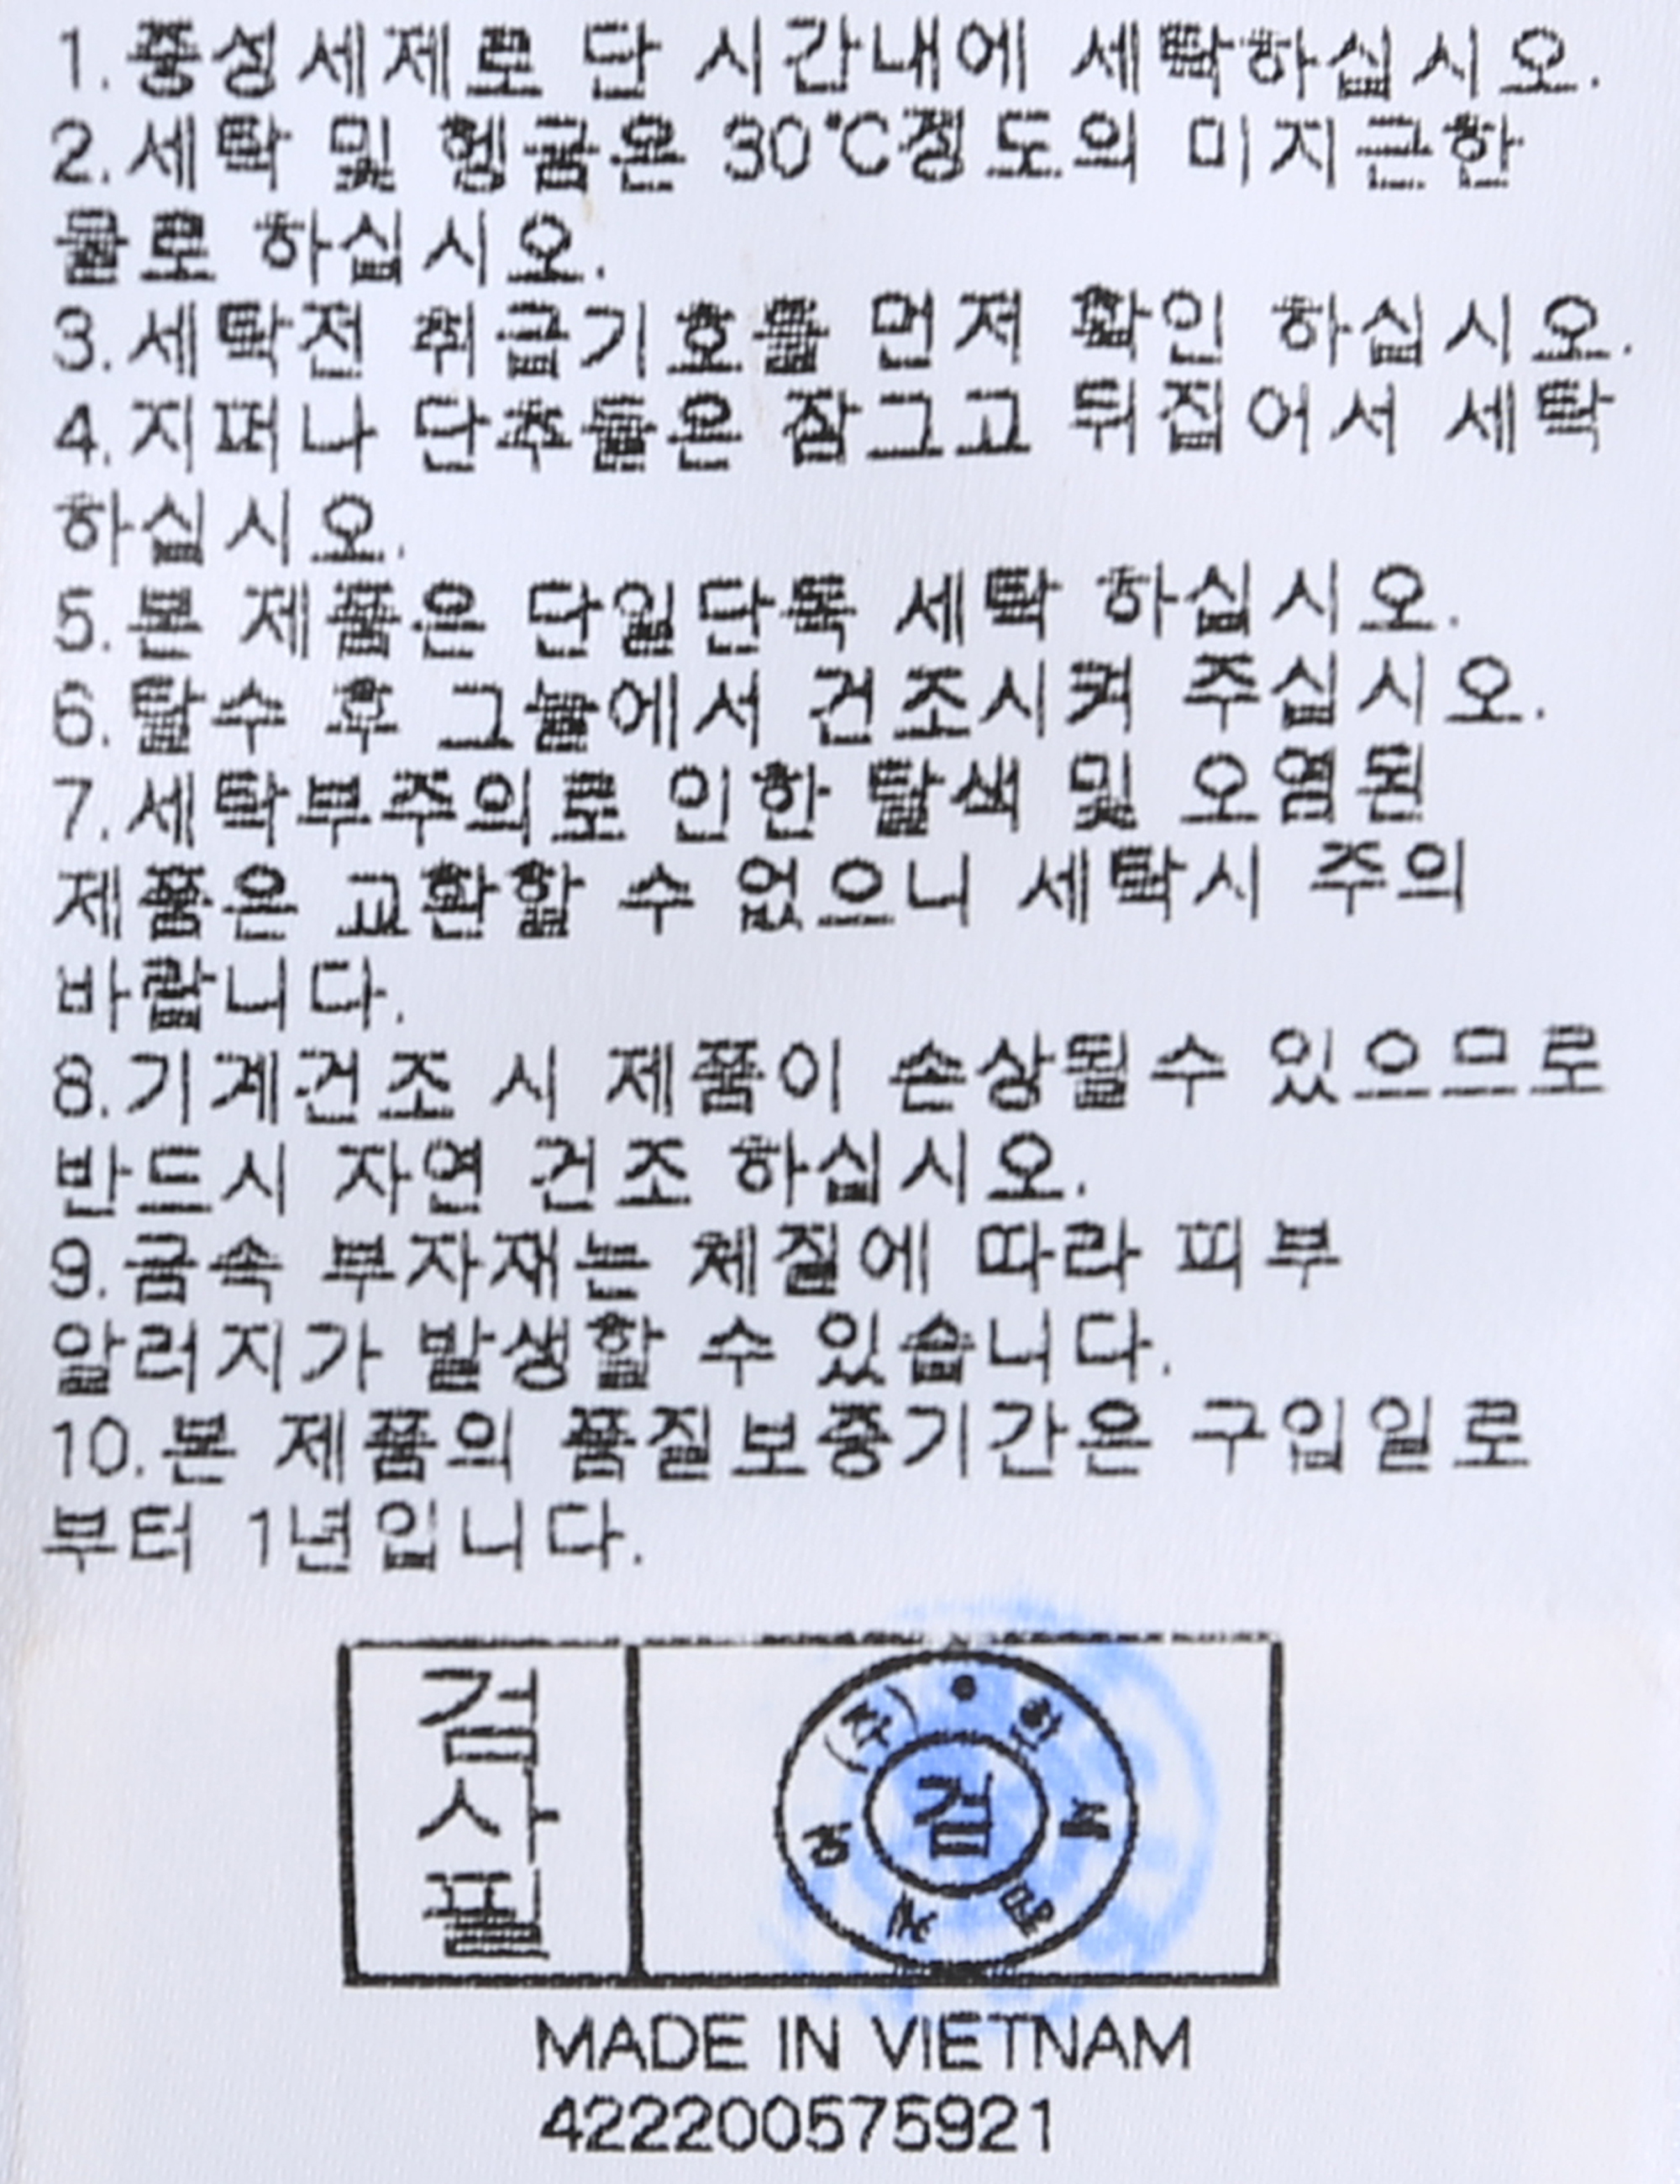 1.중성세제로 단 시간내에 세탁하십시오.
2.세탁 및 헹굼은 30℃정도의 미지근한
물로 하십시오.
3.세탁전 취급기호를 먼저 확인 하십시오.
4.지퍼나 단추들은 잠그고 뒤집어서 세탁
하십시오.
5.본 제품은 단일단독 세탁 하십시오.
6.탈수 후 그늘에서 건조시켜 주십시오.
7.세탁부주의로 인한 탈색 및 오염된
제품은 교환할 수 없으니 세탁시 주의
바랍니다.
8.기계건조 시 제품이 손상될수 있으므로
반드시 자연 건조 하십시오.
9.금속 부자재는 체질에 따라 피부
알러지가 발생할 수 있습니다.
10.본 제품의 품질보증기간은 구입일로
부터 1년입니다.
검사필
(주)
검
MADE IN VIETNAM
422200575921